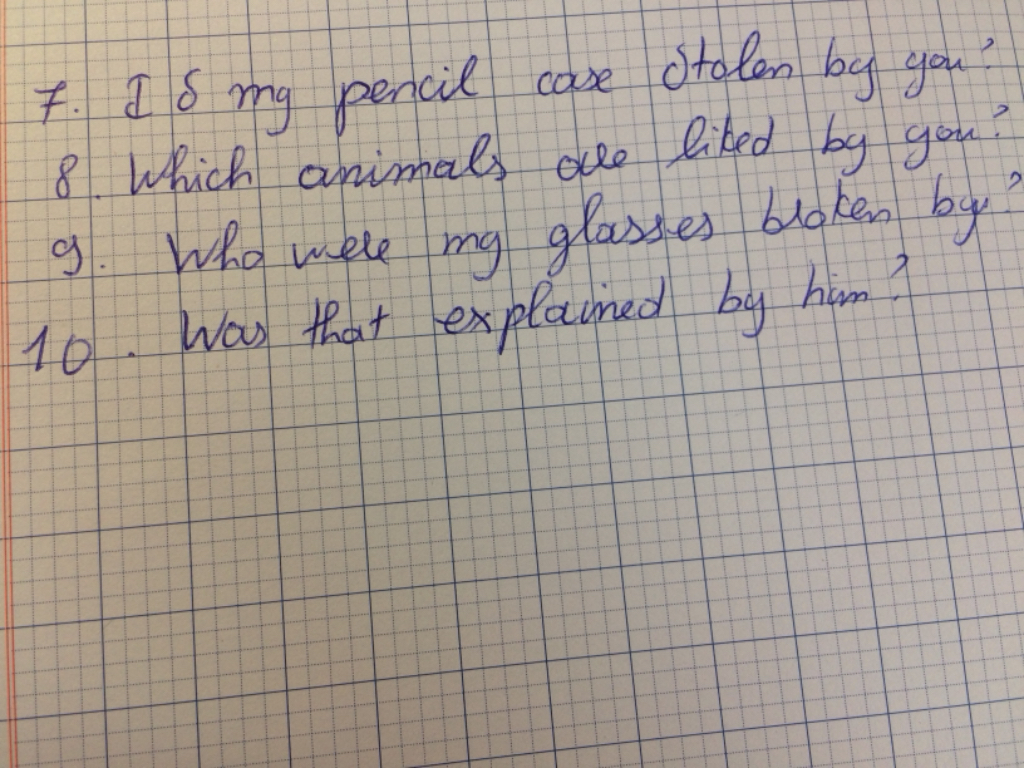 7. Is my pencil case stolen by you?
8. Which animals are liked by you?
9. Who were my glasses broken by?
10. Was that explained by him?